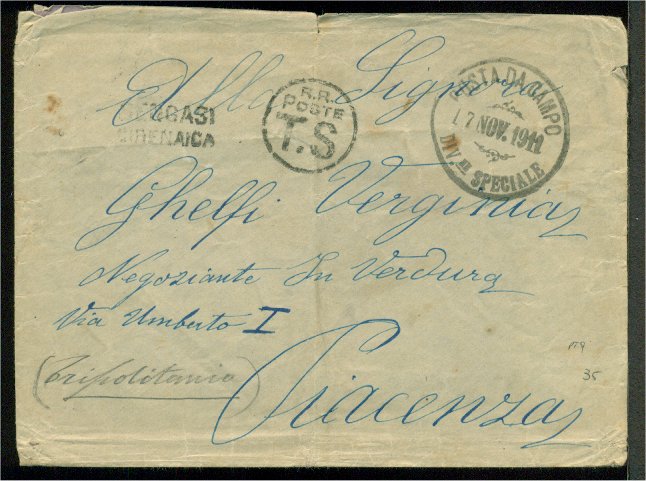 Alla Signora
BENGASI
CIRENAICA
R.R.
POSTE
T.S
POSTA DA CAMPO
17 NOV. 1911
DIV.NE SPECIALE
Ghelfi Verginia
Negoziante In Verdura
Via Umberto I
(Tripolitania)
Piacenza
35